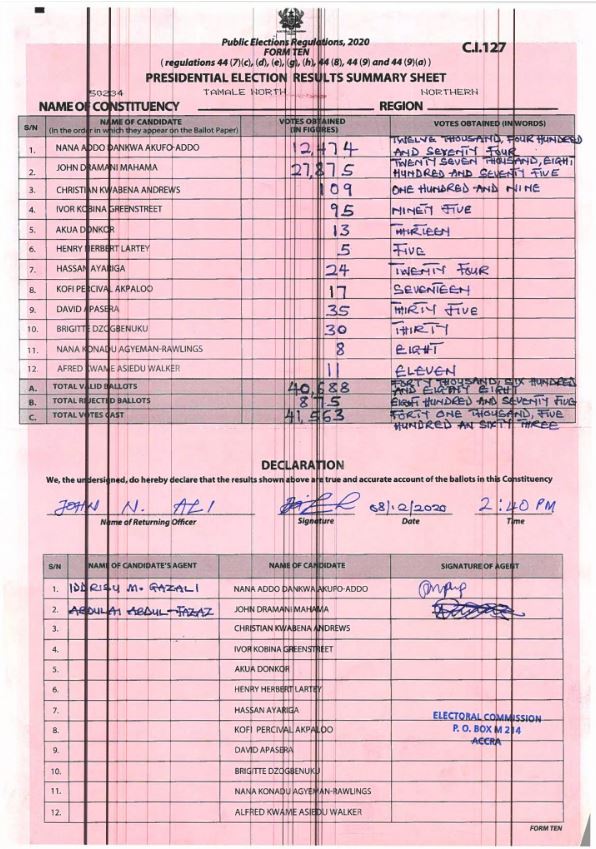 Public Elections Regulations, 2020
FORM TEN
C.I.127
(regulations 44 (7)(c), (d), (e), (g), (h), 44 (8), 44 (9) and 44 (9)(a))
PRESIDENTIAL ELECTION RESULTS SUMMARY SHEET
S0234 TAMALE NORTH NORTHERN
NAME OF CONSTITUENCY REGION
S/N NAME OF CANDIDATE (In the order in which they appear on the Ballot Paper) VOTES OBTAINED (IN FIGURES) VOTES OBTAINED (IN WORDS)
1. NANA ADDO DANKWA AKUFO-ADDO 12,474 TWELVE THOUSAND, FOUR HUNDRED AND SEVENTY FOUR
2. JOHN DRAMANI MAHAMA 27,875 TWENTY SEVEN THOUSAND, EIGHT HUNDRED AND SEVENTY FIVE
3. CHRISTIAN KWABENA ANDREWS 109 ONE HUNDRED AND NINE
4. IVOR KOBINA GREENSTREET 95 NINETY FIVE
5. AKUA DONKOR 13 THIRTEEN
6. HENRY HERBERT LARTEY 5 FIVE
7. HASSAN AYARIGA 24 TWENTY FOUR
8. KOFI PERCIVAL AKPALOO 17 SEVENTEEN
9. DAVID APASERA 35 THIRTY FIVE
10. BRIGITTE DZOGBENUKU 30 THIRTY
11. NANA KONADU AGYEMAN-RAWLINGS 8 EIGHT
12. AFRED KWAME ASIEDU WALKER 11 ELEVEN
A. TOTAL VALID BALLOTS 40,688 FORTY THOUSAND, SIX HUNDRED AND EIGHTY EIGHT
B. TOTAL REJECTED BALLOTS 875 EIGHT HUNDRED AND SEVENTY FIVE
C. TOTAL VOTES CAST 41,563 FORTY ONE THOUSAND, FIVE HUNDRED AN SIXTY THREE
DECLARATION
We, the undersigned, do hereby declare that the results shown above are true and accurate account of the ballots in this Constituency
JOHN N. ALI 08/12/2020 2:40 PM
Name of Returning Officer Signature Date Time
S/N NAME OF CANDIDATE'S AGENT NAME OF CANDIDATE SIGNATURE OF AGENT
1. IDDRISU M. GAZALI NANA ADDO DANKWA AKUFO-ADDO
2. ABDULAI ABDUL-FAZAZ JOHN DRAMANI MAHAMA
3. CHRISTIAN KWABENA ANDREWS
4. IVOR KOBINA GREENSTREET
5. AKUA DONKOR
6. HENRY HERBERT LARTEY
7. HASSAN AYARIGA
8. KOFI PERCIVAL AKPALOO
9. DAVID APASERA
10. BRIGITTE DZOGBENUKU
11. NANA KONADU AGYEMAN-RAWLINGS
12. ALFRED KWAME ASIEDU WALKER
ELECTORAL COMMISSION
P. O. BOX M 214
ACCRA
FORM TEN